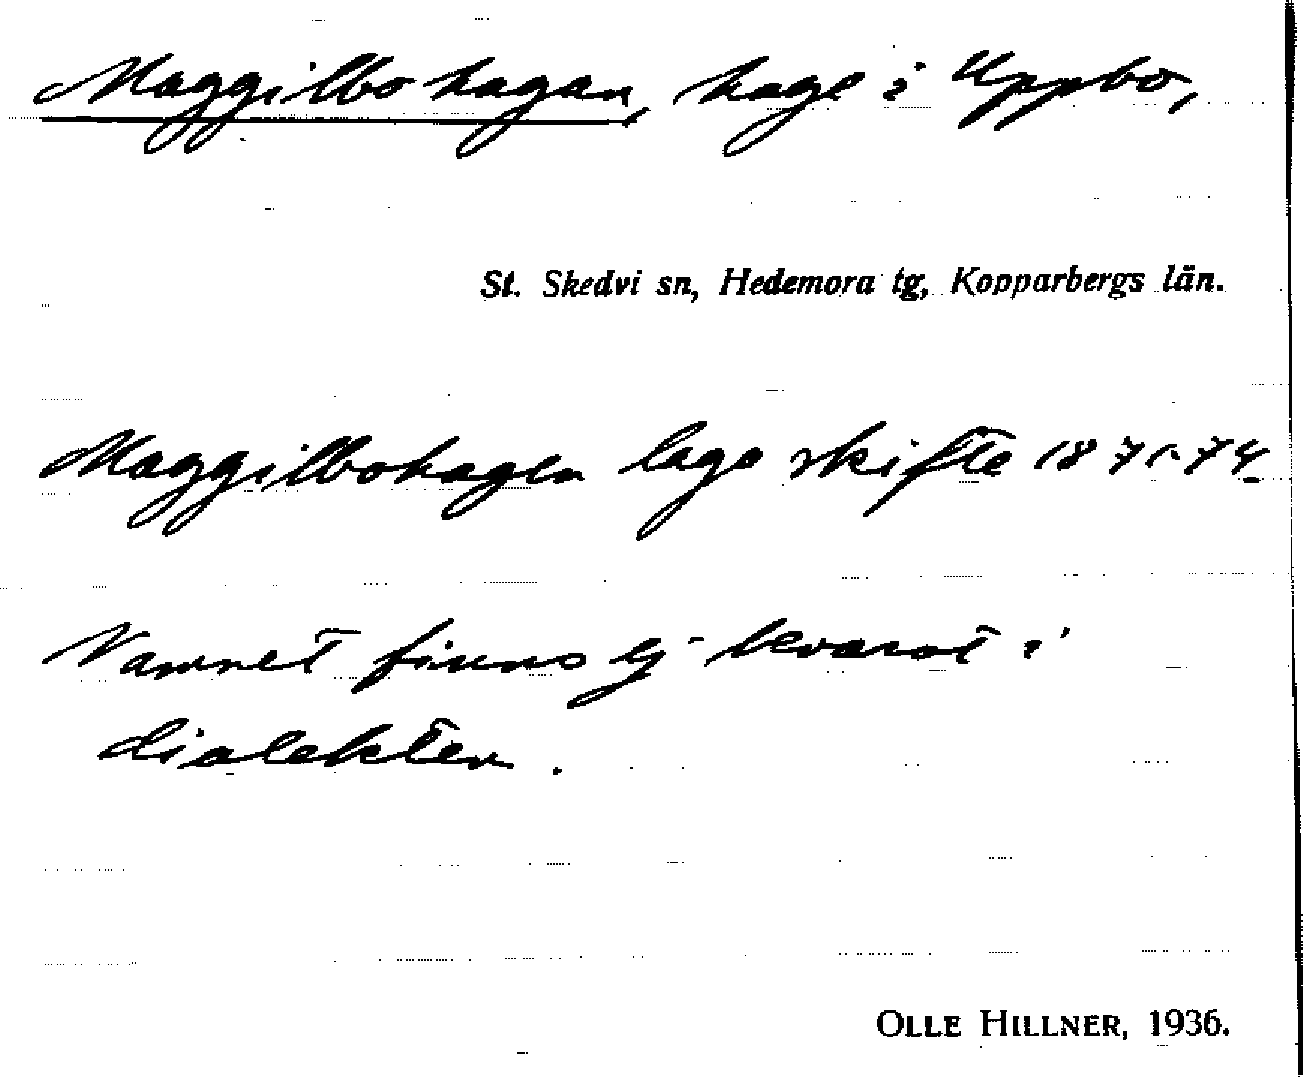 Maggilbohagan, hage i Uppbo,
St. Skedvi sn, Hedemora tg, Kopparbergs län.
Maggilbohagen laga skifte 1871-74
Namnet finns ej bevarat i
dialekten.
OLLE HILLNER, 1936.